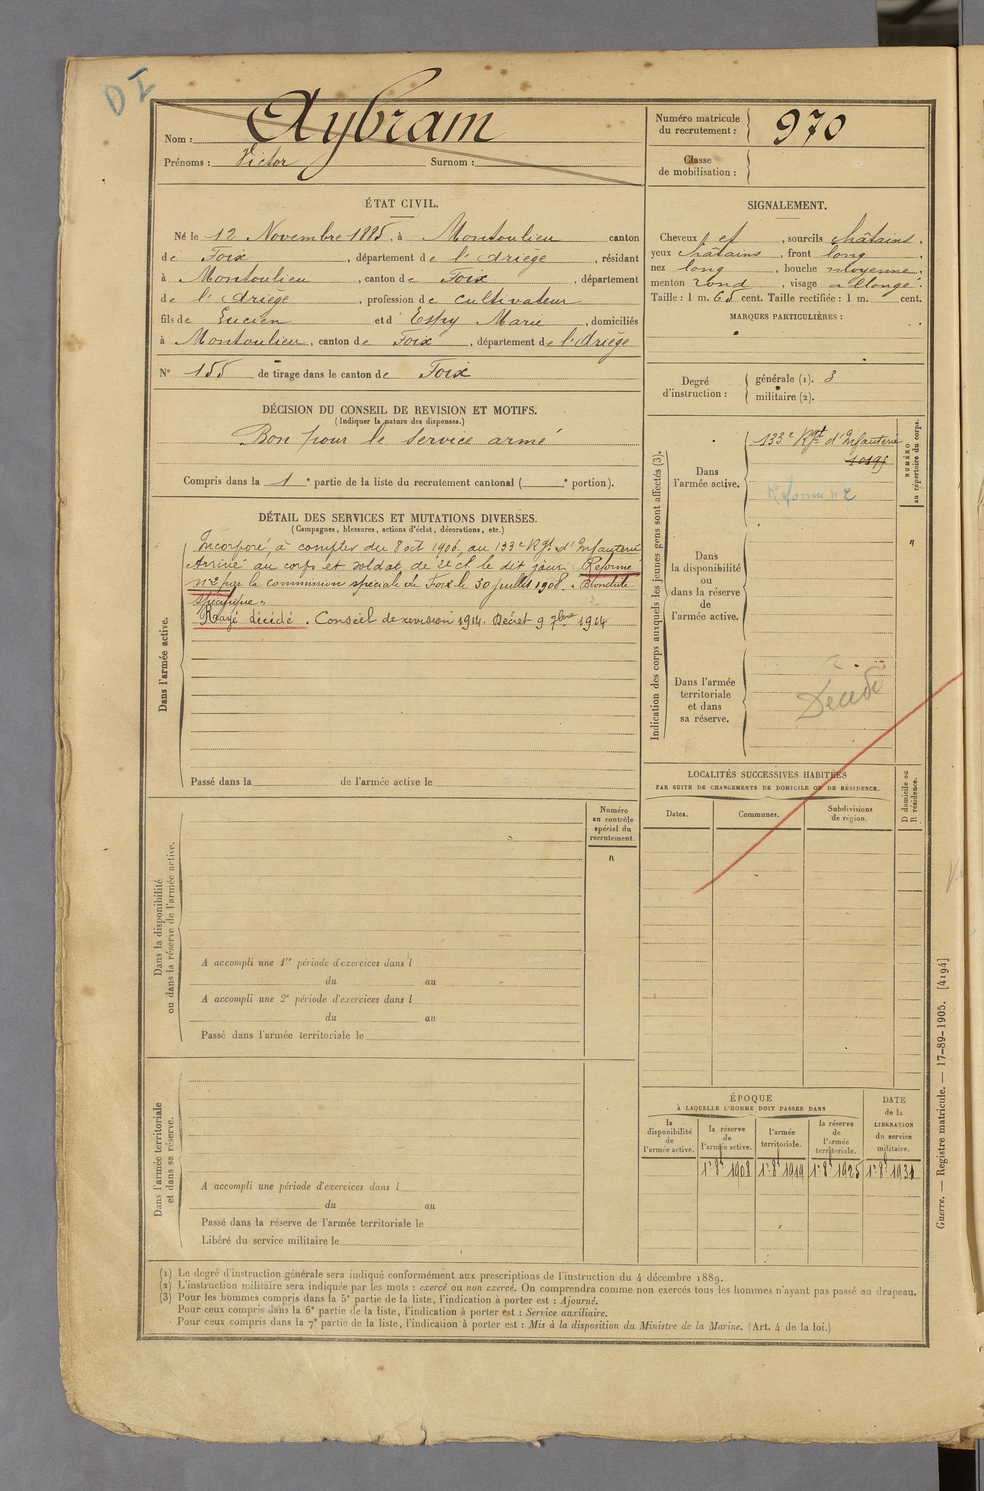 D I
Nom : Aybram
Prénoms : Victor Surnom :
Numéro matricule du recrutement : 970
Classe de mobilisation :
ÉTAT CIVIL.
Né le 12 Novembre 1885, à Montoulieu canton
de Foix, département de l'Ariège, résidant
à Montoulieu, canton de Foix, département
de l'Ariège, profession de cultivateur
fils de Lucien et d' Espy Marie, domiciliés
à Montoulieu, canton de Foix, département de l'Ariège
N° 155 de tirage dans le canton de Foix
SIGNALEMENT.
Cheveux et, sourcils châtains,
yeux châtains, front long,
nez long, bouche moyenne,
menton rond, visage allongé.
Taille : 1 m. 65 cent. Taille rectifiée : 1 m. cent.
MARQUES PARTICULIÈRES :
Degré d'instruction :
générale (1). 3
militaire (2).
DÉCISION DU CONSEIL DE REVISION ET MOTIFS.
(Indiquer la nature des dispenses.)
Bon pour le service armé
Compris dans la 1e partie de la liste du recrutement cantonal ( e portion).
DÉTAIL DES SERVICES ET MUTATIONS DIVERSES.
(Campagnes, blessures, actions d'éclat, décorations, etc.)
Dans l'armée active.
Incorporé à compter du 8 oct 1906, au 133e Rgt d'Infanterie
Arrivé au corps et soldat de 2e cl. le dit jour. Réformé
n°2 par la commission spéciale de Foix le 30 juillet 1908. Bronchite
spécifique.
Rayé décédé. Conseil de revision 1914. Décret 9 7bre 1914
Passé dans la de l'armée active le
Indication des corps auxquels les jeunes gens sont affectés (3).
Dans l'armée active.
133e Rgt d'Infanterie
10195
Réforme n° 2
NUMÉRO au répertoire du corps.
"
Dans la disponibilité ou dans la réserve de l'armée active.
Dans l'armée territoriale et dans sa réserve.
Décédé
LOCALITÉS SUCCESSIVES HABITÉES
PAR SUITE DE CHANGEMENTS DE DOMICILE OU DE RÉSIDENCE.
Dates.
Communes.
Subdivisions de région.
D domicile ou R résidence.
Numéro au contrôle spécial du recrutement.
"
Dans la disponibilité ou dans la réserve de l'armée active.
A accompli une 1re période d'exercices dans l
du au
A accompli une 2e période d'exercices dans l
du au
Passé dans l'armée territoriale le
Dans l'armée territoriale et dans sa réserve.
A accompli une période d'exercices dans l
du au
Passé dans la réserve de l'armée territoriale le
Libéré du service militaire le
ÉPOQUE
À LAQUELLE L'HOMME DOIT PASSER DANS
la disponibilité de l'armée active.
la réserve de l'armée active.
l'armée territoriale.
la réserve de l'armée territoriale.
DATE de la LIBÉRATION du service militaire.
1r 8e 1908 1r 8e 1919 1r 8e 1925 1r 8e 1931
(1) Le degré d'instruction générale sera indiqué conformément aux prescriptions de l'instruction du 4 décembre 1889.
(2) L'instruction militaire sera indiquée par les mots : exercé ou non exercé. On comprendra comme non exercés tous les hommes n'ayant pas passé au drapeau.
(3) Pour les hommes compris dans la 5e partie de la liste, l'indication à porter est : Ajourné.
Pour ceux compris dans la 6e partie de la liste, l'indication à porter est : Service auxiliaire.
Pour ceux compris dans la 7e partie de la liste, l'indication à porter est : Mis à la disposition du Ministre de la Marine. (Art. 4 de la loi.)
Guerre. — Registre matricule. — 17-89-1905. [4194]